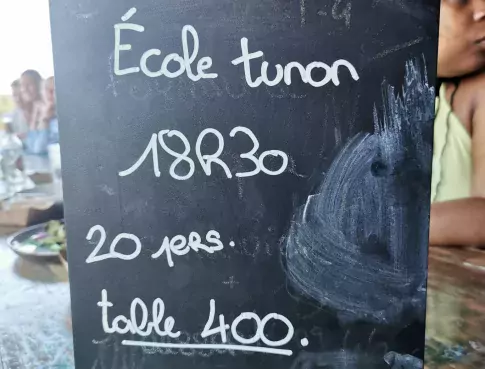 École tunon
18R30
20 pers.
table 400.